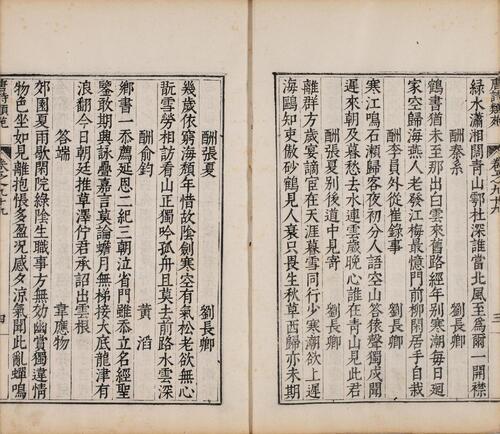 唐詩類苑
三
綠水瀟湘闊青山鄠杜深誰當北風至為爾一開襟
酬秦系 劉長卿
鶴書猶未至那出白雲來舊路經年別寒潮每日迴
家空歸海燕人老發江梅最憶門前柳閒居手自栽
酬李員外從崔錄事 劉長卿
寒江鳴石瀨歸客夜初分人語空山答猿聲獨戍聞
遲來朝及暮愁去水連雲歲晚心誰在青山見此君
酬張夏別後道中見寄 劉長卿
離群方歲宴謫宦在天涯暮雪同行少寒潮欲上遲
海鷗知吏傲砂鶴見人衰只畏生秋草西歸亦未期
酬張夏 劉長卿
幾歲依窮海頹年惜故陰劍寒空有氣松老欲無心
翫雪勞相訪看山正獨吟孤舟且莫去前路水雲深
酬俞鈞 黃滔
鄉書一忝薦延恩二紀三朝泣省門雖忝立名經聖
鑒敢期興詠疊嘉言莫論蟾月無梯接大底龍津有
浪翻今日朝廷推草澤佇君承詔出雲根
答端 韋應物
郊園夏雨歇閑院綠陰生職事方無効幽賞獨違情
物色坐如見離抱悵多盈況感夕涼氣聞此亂蟬鳴
唐詩類苑
四